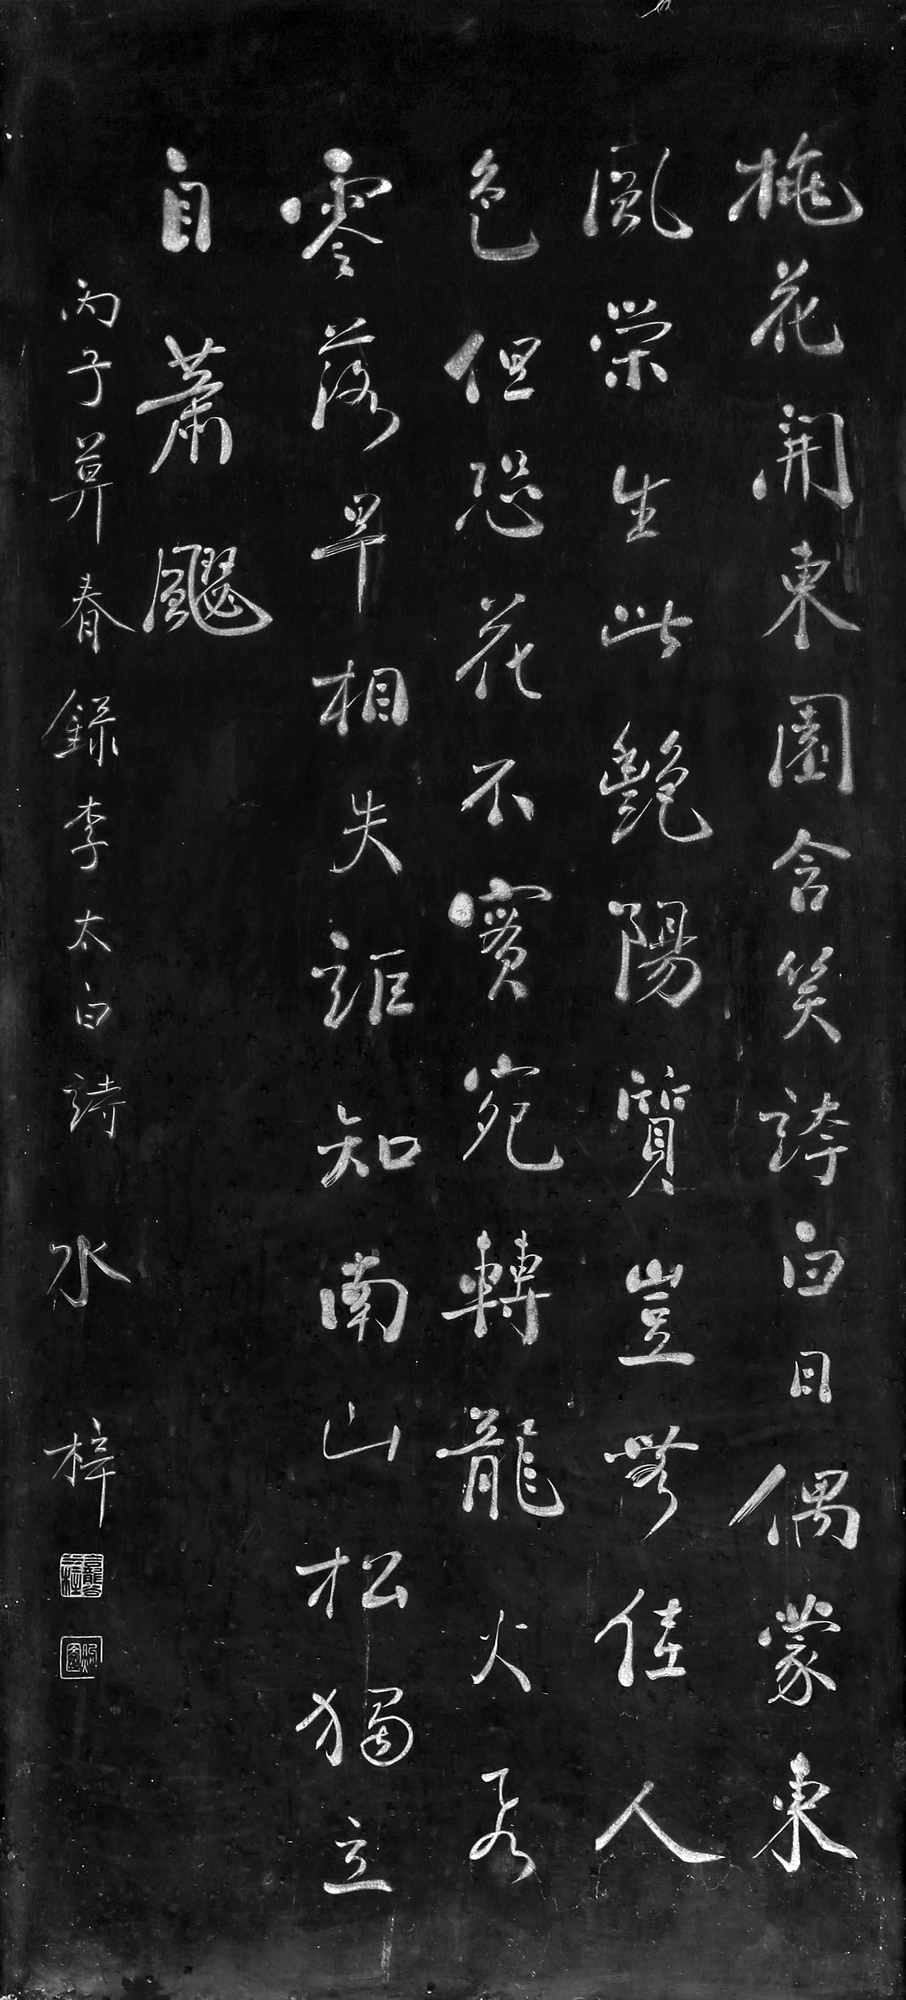 桃花開東園含笑誇白日偶蒙東
風榮生此艷陽質豈無佳人
色但恐花不實宛轉龍火飛
零落早相失詎知南山松獨立
自蕭飋
丙子草春錄李太白詩 水梓